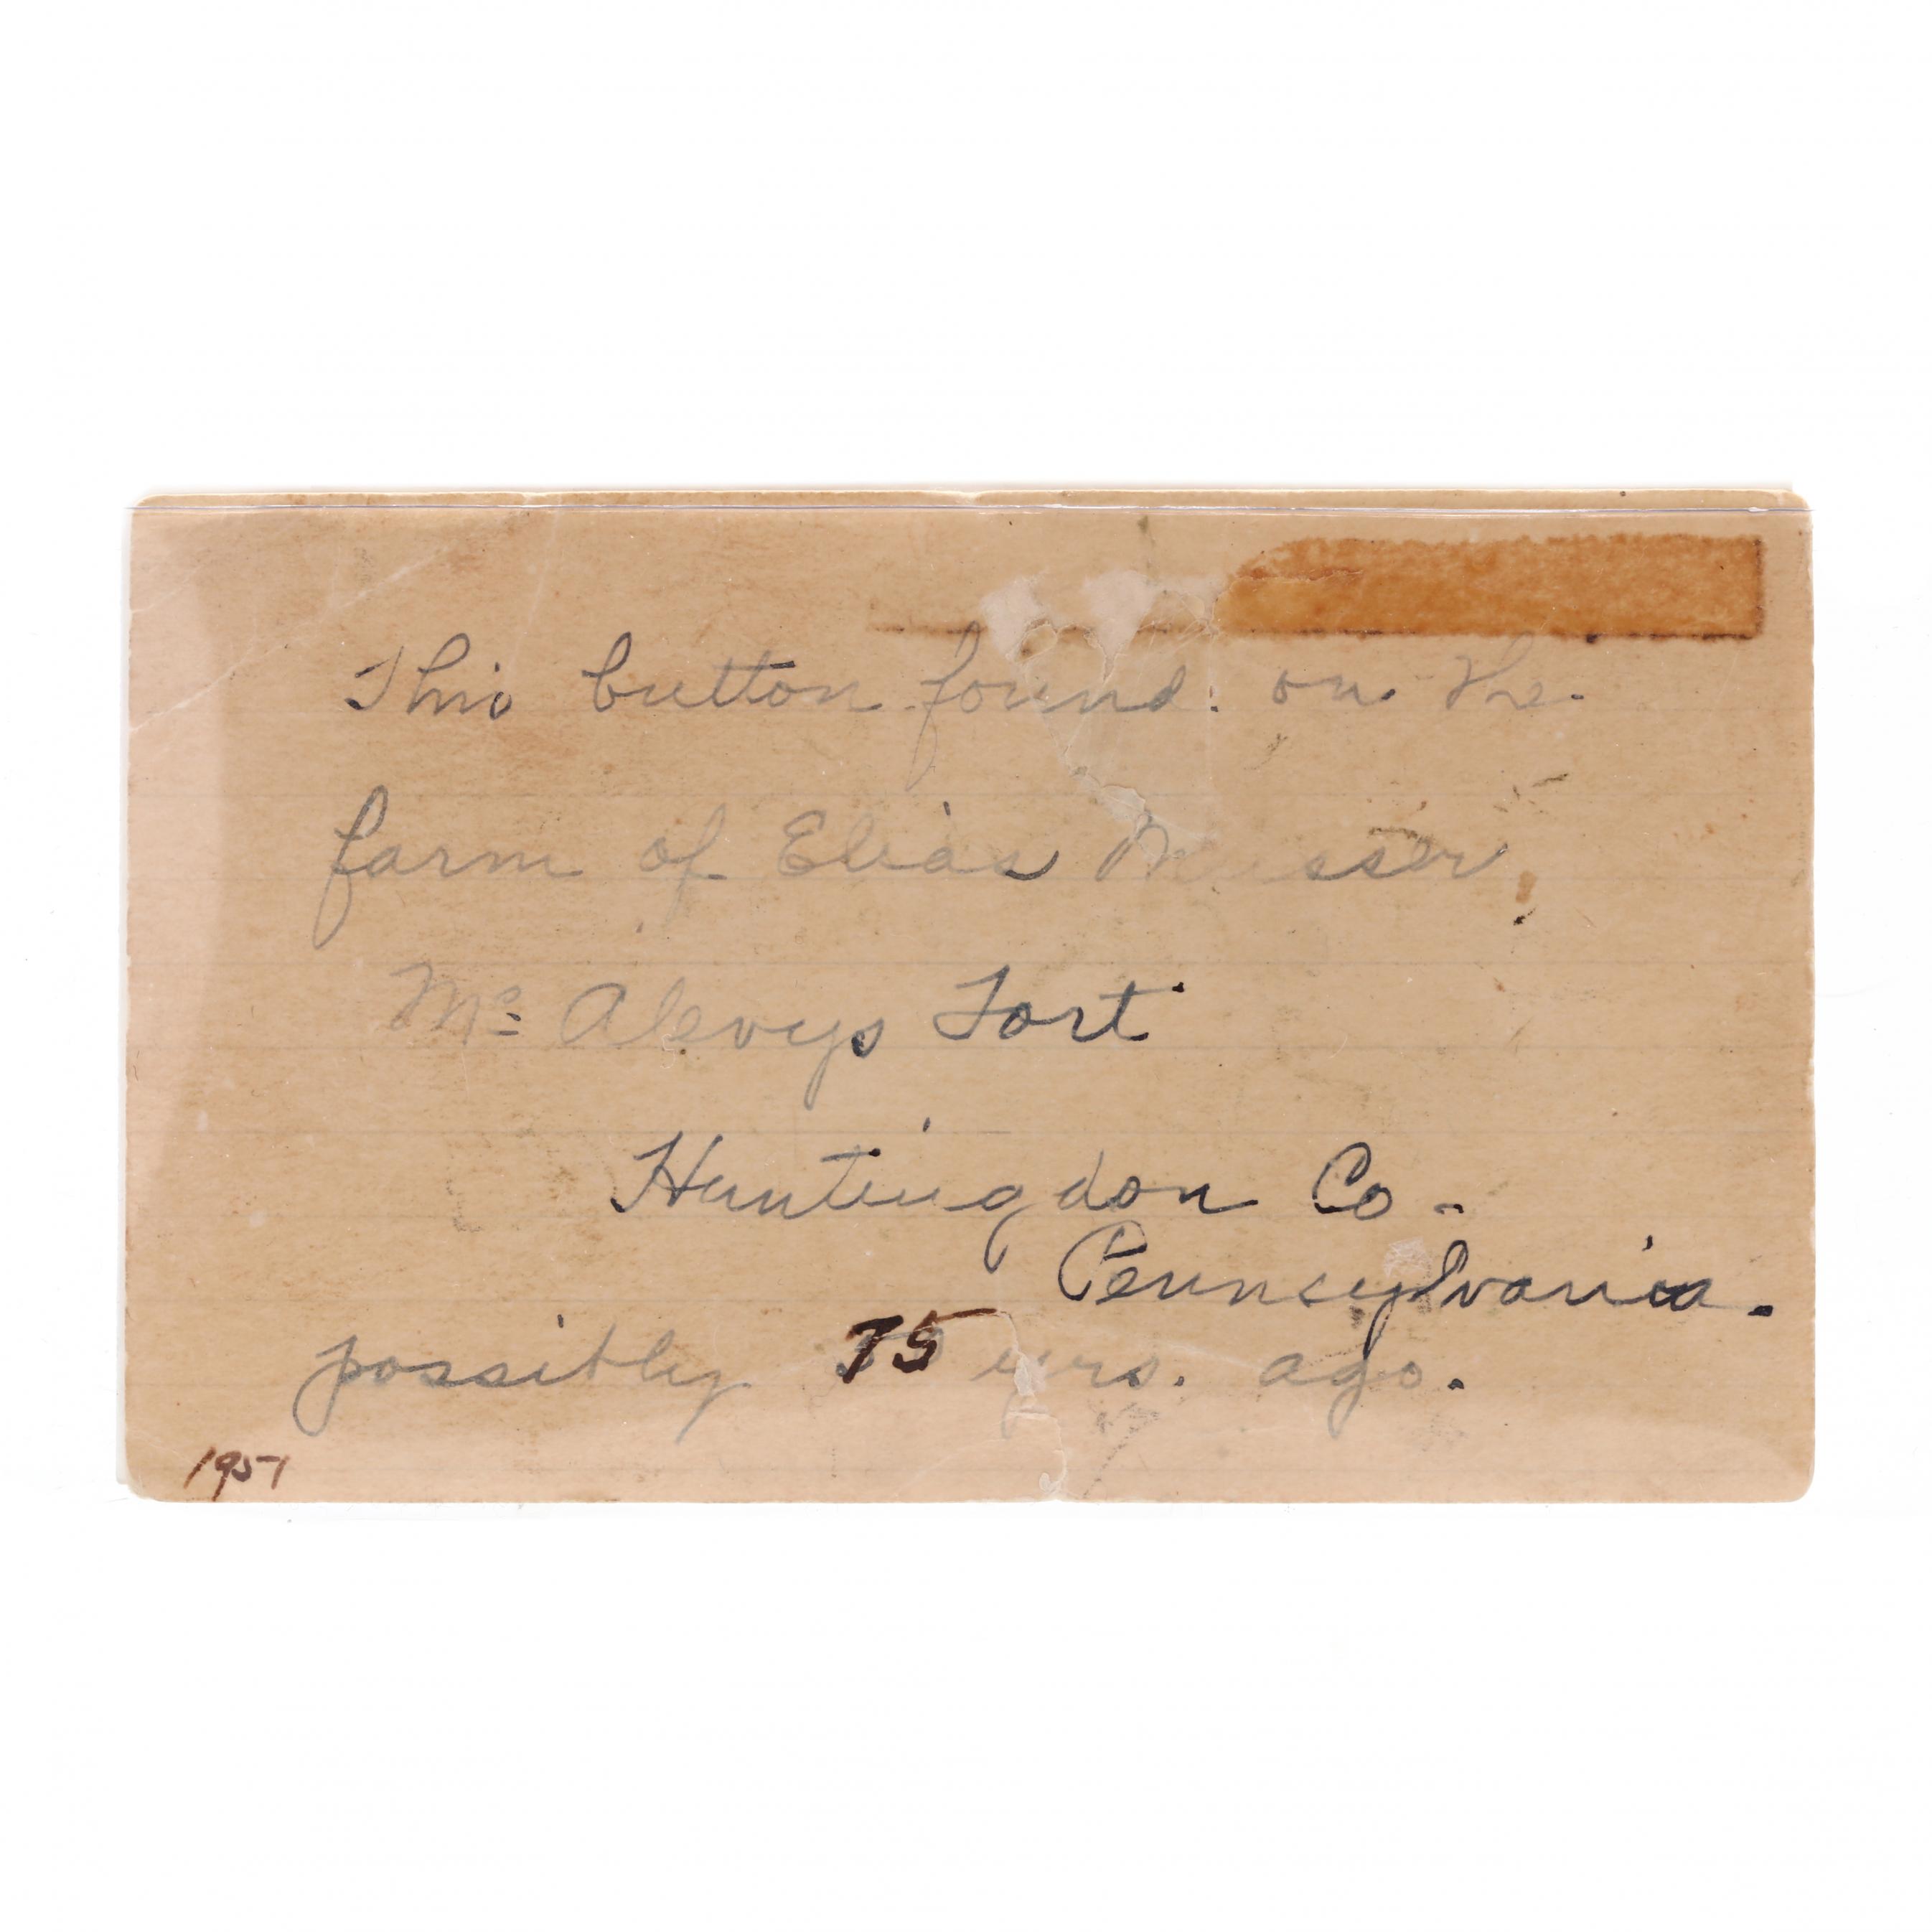 This button found on the
farm of Elias
Mc Alevys Fort
Huntingdon Co.
Pennsylvania.
possibly 75 yrs. ago.
1951